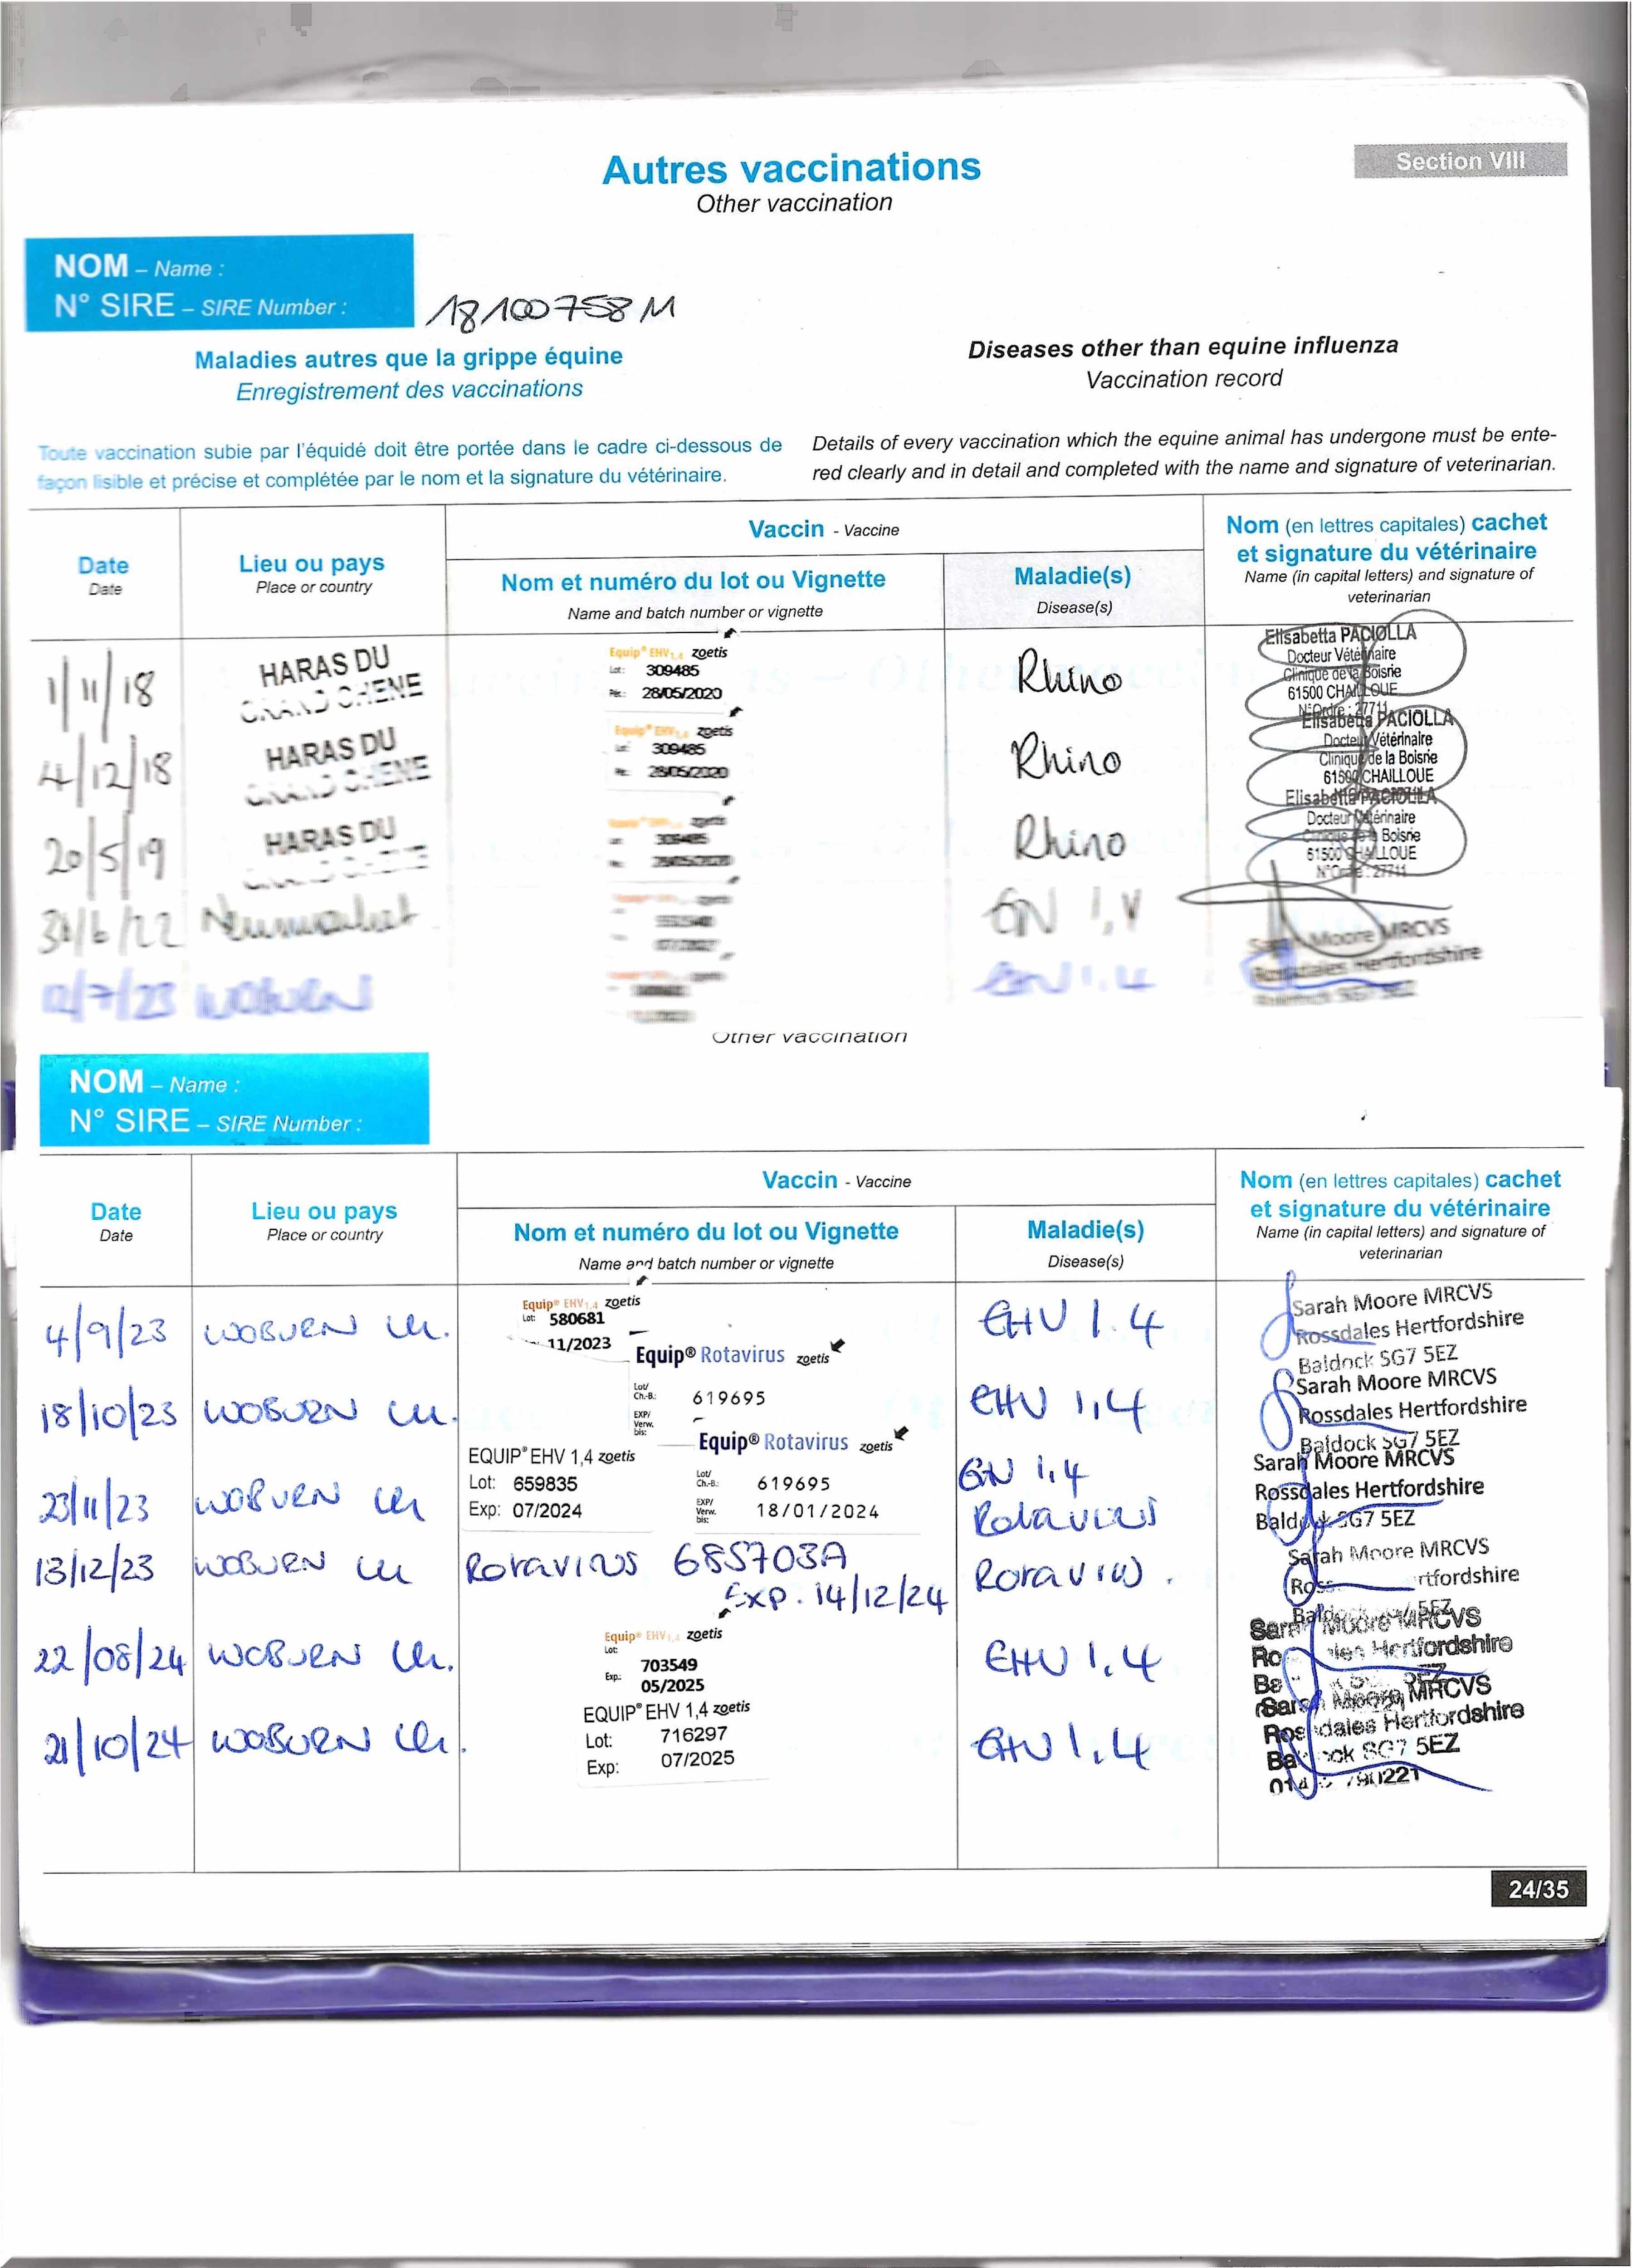 Section VIII
Autres vaccinations
Other vaccination
NOM – Name :
N° SIRE – SIRE Number : 18100758M
Maladies autres que la grippe équine
Enregistrement des vaccinations
Diseases other than equine influenza
Vaccination record
Toute vaccination subie par l'équidé doit être portée dans le cadre ci-dessous de
façon lisible et précise et complétée par le nom et la signature du vétérinaire.
Details of every vaccination which the equine animal has undergone must be ente-
red clearly and in detail and completed with the name and signature of veterinarian.
Date
Date
Lieu ou pays
Place or country
Vaccin - Vaccine
Nom et numéro du lot ou Vignette
Name and batch number or vignette
Maladie(s)
Disease(s)
Nom (en lettres capitales) cachet
et signature du vétérinaire
Name (in capital letters) and signature of
veterinarian
1/11/18
HARAS DU
GRAND CHENE
Equip® EHV1,4 zoetis
Lot: 309485
Pér.: 28/05/2020
Rhino
Elisabetta PACIOLLA
Docteur Vétérinaire
Clinique de la Boisrie
61500 CHAILLOUE
N°Ordre : 27711
4/12/18
HARAS DU
GRAND CHENE
Equip® EHV1,4 zoetis
309485
28/05/2020
Rhino
Elisabetta PACIOLLA
Docteur Vétérinaire
Clinique de la Boisrie
61500 CHAILLOUE
20/5/19
HARAS DU
GRAND CHENE
309485
28/05/2020
Rhino
Elisabetta PACIOLLA
Docteur Vétérinaire
Clinique de la Boisrie
61500 CHAILLOUE
N°Ordre : 27711
30/6/22
Newmarket
Sarah Moore MRCVS
Rossdales Hertfordshire
Baldock SG7 5EZ
12/7/23
WOBURN
EHV 1.4
Other vaccination
NOM – Name :
N° SIRE – SIRE Number :
Date
Date
Lieu ou pays
Place or country
Vaccin - Vaccine
Nom et numéro du lot ou Vignette
Name and batch number or vignette
Maladie(s)
Disease(s)
Nom (en lettres capitales) cachet
et signature du vétérinaire
Name (in capital letters) and signature of
veterinarian
4/9/23
WOBURN
Equip® EHV1,4 zoetis
Lot: 580681
11/2023
EHV 1.4
Sarah Moore MRCVS
Rossdales Hertfordshire
Baldock SG7 5EZ
18/10/23
WOBURN
Equip® Rotavirus zoetis
Lot/
Ch.-B.: 619695
EXP/
Verw.
bis:
EHV 1,4
Sarah Moore MRCVS
Rossdales Hertfordshire
Baldock SG7 5EZ
23/11/23
WOBURN
EQUIP® EHV 1,4 zoetis
Lot: 659835
Exp: 07/2024
Equip® Rotavirus zoetis
Lot/
Ch.-B.: 619695
EXP/
Verw.
bis: 18/01/2024
EHV 1,4
Rotavirus
Sarah Moore MRCVS
Rossdales Hertfordshire
Baldock SG7 5EZ
13/12/23
WOBURN
Rotavirus 685703A
Exp. 14/12/24
Rotavirus.
Sarah Moore MRCVS
Rossdales Hertfordshire
Baldock SG7 5EZ
22/08/24
WOBURN
Equip® EHV1,4 zoetis
Lot:
703549
Exp.:
05/2025
EHV 1.4
Sarah Moore MRCVS
Rossdales Hertfordshire
21/10/24
WOBURN
EQUIP® EHV 1,4 zoetis
Lot: 716297
Exp: 07/2025
EHV 1.4
Sarah Moore MRCVS
Rossdales Hertfordshire
Baldock SG7 5EZ
24/35